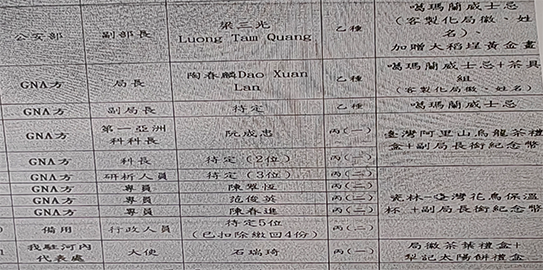 公安部 副部長 梁三光 Luong Tam Quang 乙種 噶瑪蘭威士忌(客製化局徽、姓名)、加贈大稻埕黃金畫
GNA方 局長 陶春麟Dao Xuan Lan 乙種 噶瑪蘭威士忌+茶具組(客製化局徽、姓名)
GNA方 副局長 待定 乙種 噶瑪蘭威士忌
GNA方 第一亞洲科科長 阮成忠 丙(一) 臺灣阿里山烏龍茶禮盒+副局長銜紀念幣
GNA方 科長 待定(2位) 丙(一)
GNA方 研析人員 待定(3位) 丙(二) 瓷林-臺灣花鳥保溫杯+副局長銜紀念幣
GNA方 專員 陳翠恆 丙(二)
GNA方 專員 范俊英 丙(二)
GNA方 專員 陳春進 丙(二)
備用 行政人員 待定5位(已扣除繳回4份) 丙(二)
我駐河內代表處 大使 石瑞琦 丙(一) 局徽茶葉禮盒+犁記太陽餅禮盒